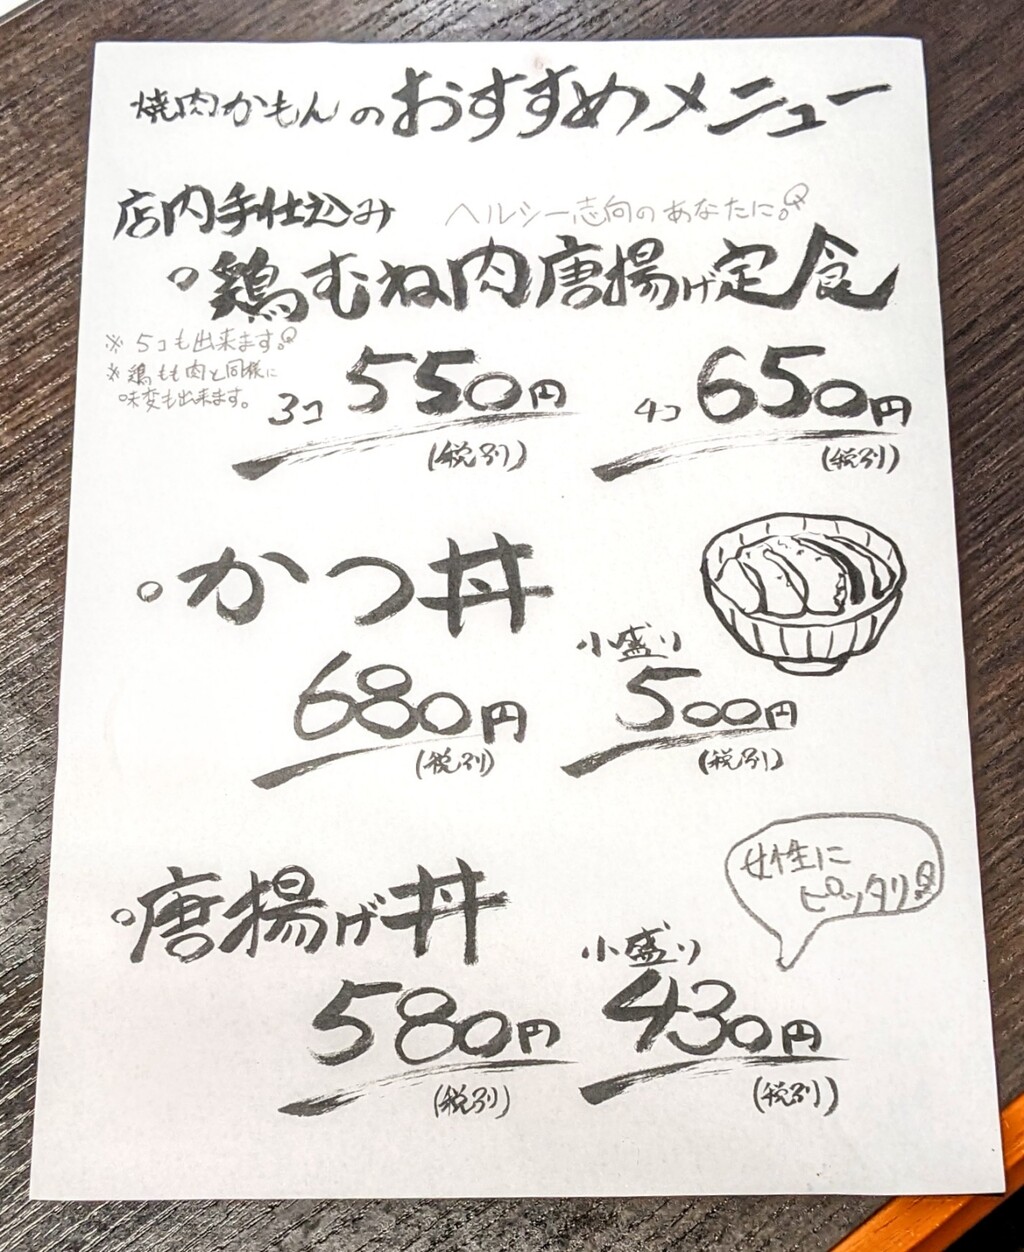 焼肉かもんのおすすめメニュー
店内手仕込み
ヘルシー志向のあなたに。
・鶏むね肉唐揚げ定食
※5コも出来ます。
※鶏もも肉と同様に
味変も出来ます。
3コ 550円
(税別)
4コ 650円
(税別)
・かつ丼
680円
(税別)
小盛り
500円
(税別)
・唐揚げ丼
女性に
ピッタリ!
580円
(税別)
小盛り
430円
(税別)